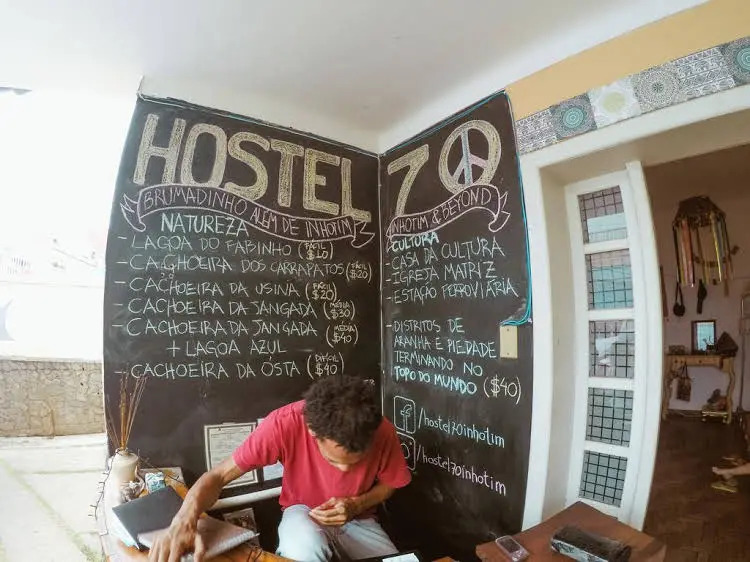 HOSTEL
BRUMADINHO ALÉM DE INHOTIM
NATUREZA
- LAGOA DO FABINHO (FÁCIL $10)
- CACHOEIRA DOS CARRAPATOS (FÁCIL $20)
- CACHOEIRA DA USINA (FÁCIL $20)
- CACHOEIRA DA JANGADA (MÉDIA $30)
- CACHOEIRA DA JANGADA (MÉDIA $40)
+ LAGOA AZUL
- CACHOEIRA DA ÓSTA (DIFÍCIL $40)
70
INHOTIM & BEYOND
CULTURA
- CASA DA CULTURA
- IGREJA MATRIZ
- ESTAÇÃO FERROVIÁRIA
- DISTRITOS DE
ARANHA E PIEDADE
TERMINANDO NO
TOPO DO MUNDO ($40)
f /hostel70inhotim
/hostel70inhotim